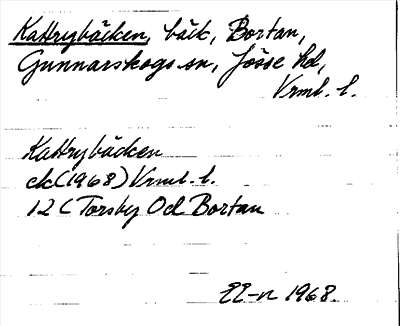 Kattrybäcken, bäck, Bortan,
Gunnarskogs sn, Jösse hd,
Vrml. l.
Kattrybäcken
ek (1968) Vrml. l.
12 C Torsby Od Bortan
1968.